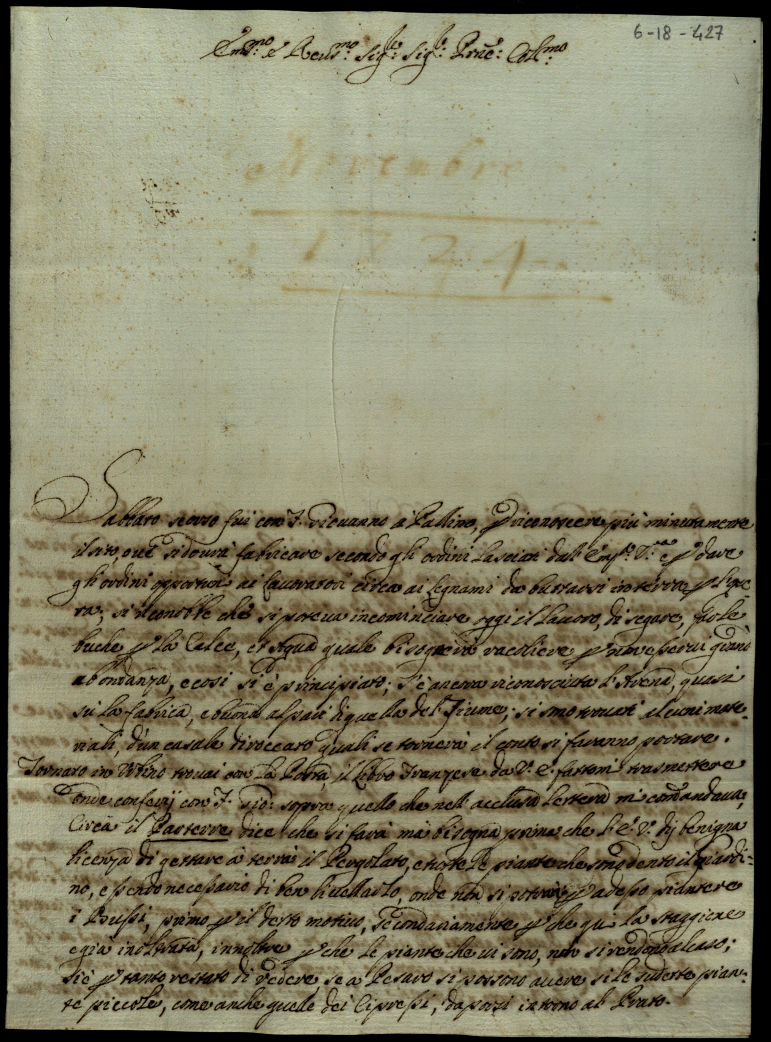 6-18-427
Em.mo e Reu.mo Sig.r Sig.r Prne: Col.mo
Novembre
1724
Sabbato scorso fui con F. Giouanno a Pallino, p riconoscere più minutamente
il sito, oue si dourà fabricare secondo gli ordini lasciati dall' Em.za V.ra e p dare
gli ordini opportuni ai Lauoratori circa ai legnami da buttarsi in terra p l'ope
ra, si riconobbe che si poteua incominciare oggi il lauoro, di segare, far le
buche p la Calce, et Aqua quale bisognerà racoliere p non esserui quando
abondanza, e cosi si è principiato; S'è ancora riconosciuta l'Arena, quasi
su la fabrica, e buona al pari di quella del Fiume; si sono trouati alcuni mate
riali, d'un casale diroccato quali se tornerà il conto si faranno portare.
Tornato in Urbino trouai con la Posta, il libro Franzese da V. E. fattomi trasmettere
onde conferij con F. Gio: sopra quello che nell' acclusa lettera mi comandaua,
Circa il Parterre dice che si farà mà bisogna prima che l'E. V. dij benigna
licenza di gettare à terra il Pergolato, e tutte le piante che sono dento il giardi-
no, essendo necessario di ben liuellarlo, onde non si potrà p adesso piantare
i Bussi, primo p il detto motiuo, Secondariamente p che qui la staggione
e già inoltrata, innoltre p che le piante che ui sono, non si rendono al caso;
si è p tanto restato di uedere, se a Pesaro si possono auere si le sudette pian-
te piccole, come anche quelle dei Cipressi, da porsi intorno al Prato.